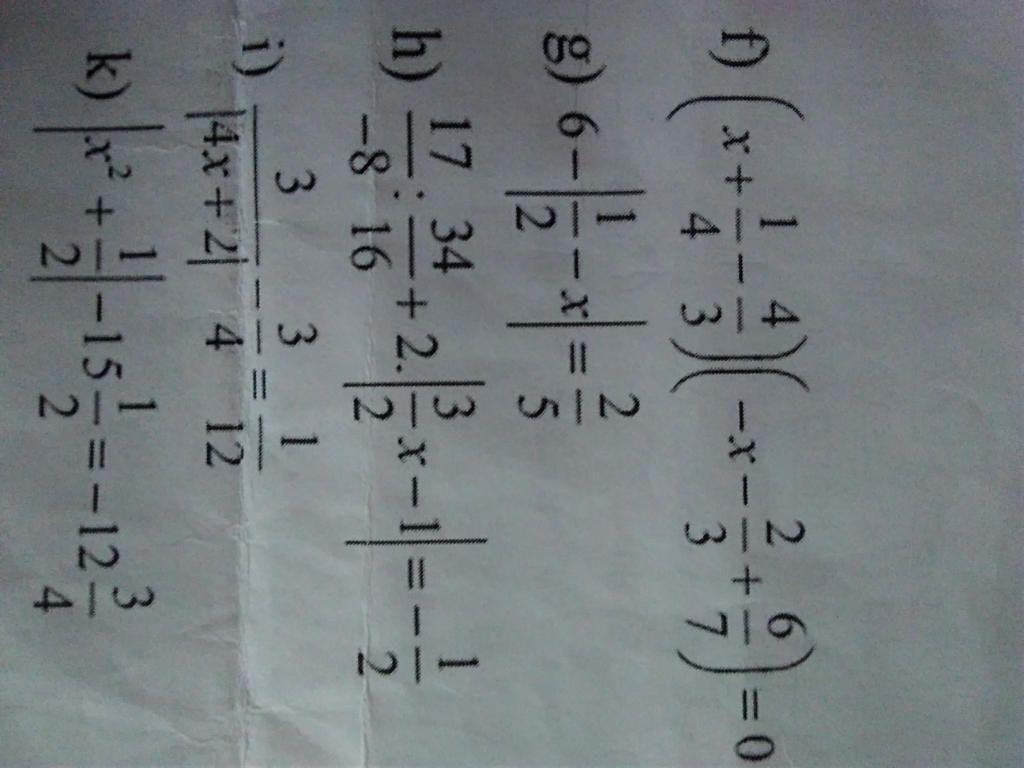 f) (x + 1/4 - 4/3)(-x - 2/3 + 6/7) = 0
g) 6 - |1/2 - x| = 2/5
h) 17/-8 : 34/16 + 2.|3/2 x - 1| = -1/2
i) 3/|4x + 2| - 3/4 = 1/12
k) |x² + 1/2| - 15 1/2 = -12 3/4